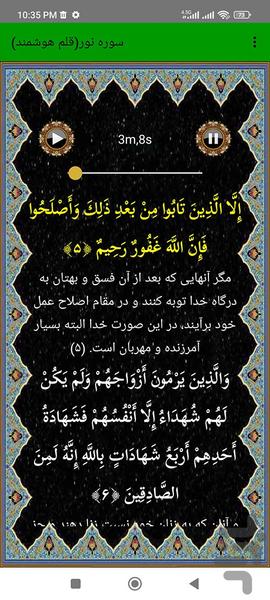 10:35 PM
4.5G
73
سوره نور(قلم هوشمند)
3m,8s
إِلَّا الَّذِينَ تَابُوا مِنْ بَعْدِ ذَلِكَ وَأَصْلَحُوا
فَإِنَّ اللَّهَ غَفُورٌ رَحِيمٌ ﴿۵﴾
مگر آنهایی که بعد از آن فسق و بهتان به
درگاه خدا توبه کنند و در مقام اصلاح عمل
خود برآیند، در این صورت خدا البته بسیار
آمرزنده و مهربان است. (۵)
وَالَّذِينَ يَرْمُونَ أَزْوَاجَهُمْ وَلَمْ يَكُنْ
لَهُمْ شُهَدَاءُ إِلَّا أَنْفُسُهُمْ فَشَهَادَةُ
أَحَدِهِمْ أَرْبَعُ شَهَادَاتٍ بِاللَّهِ إِنَّهُ لَمِنَ
الصَّادِقِينَ ﴿۶﴾
و آنان که به زنان خود نسبت زنا دهند و جز